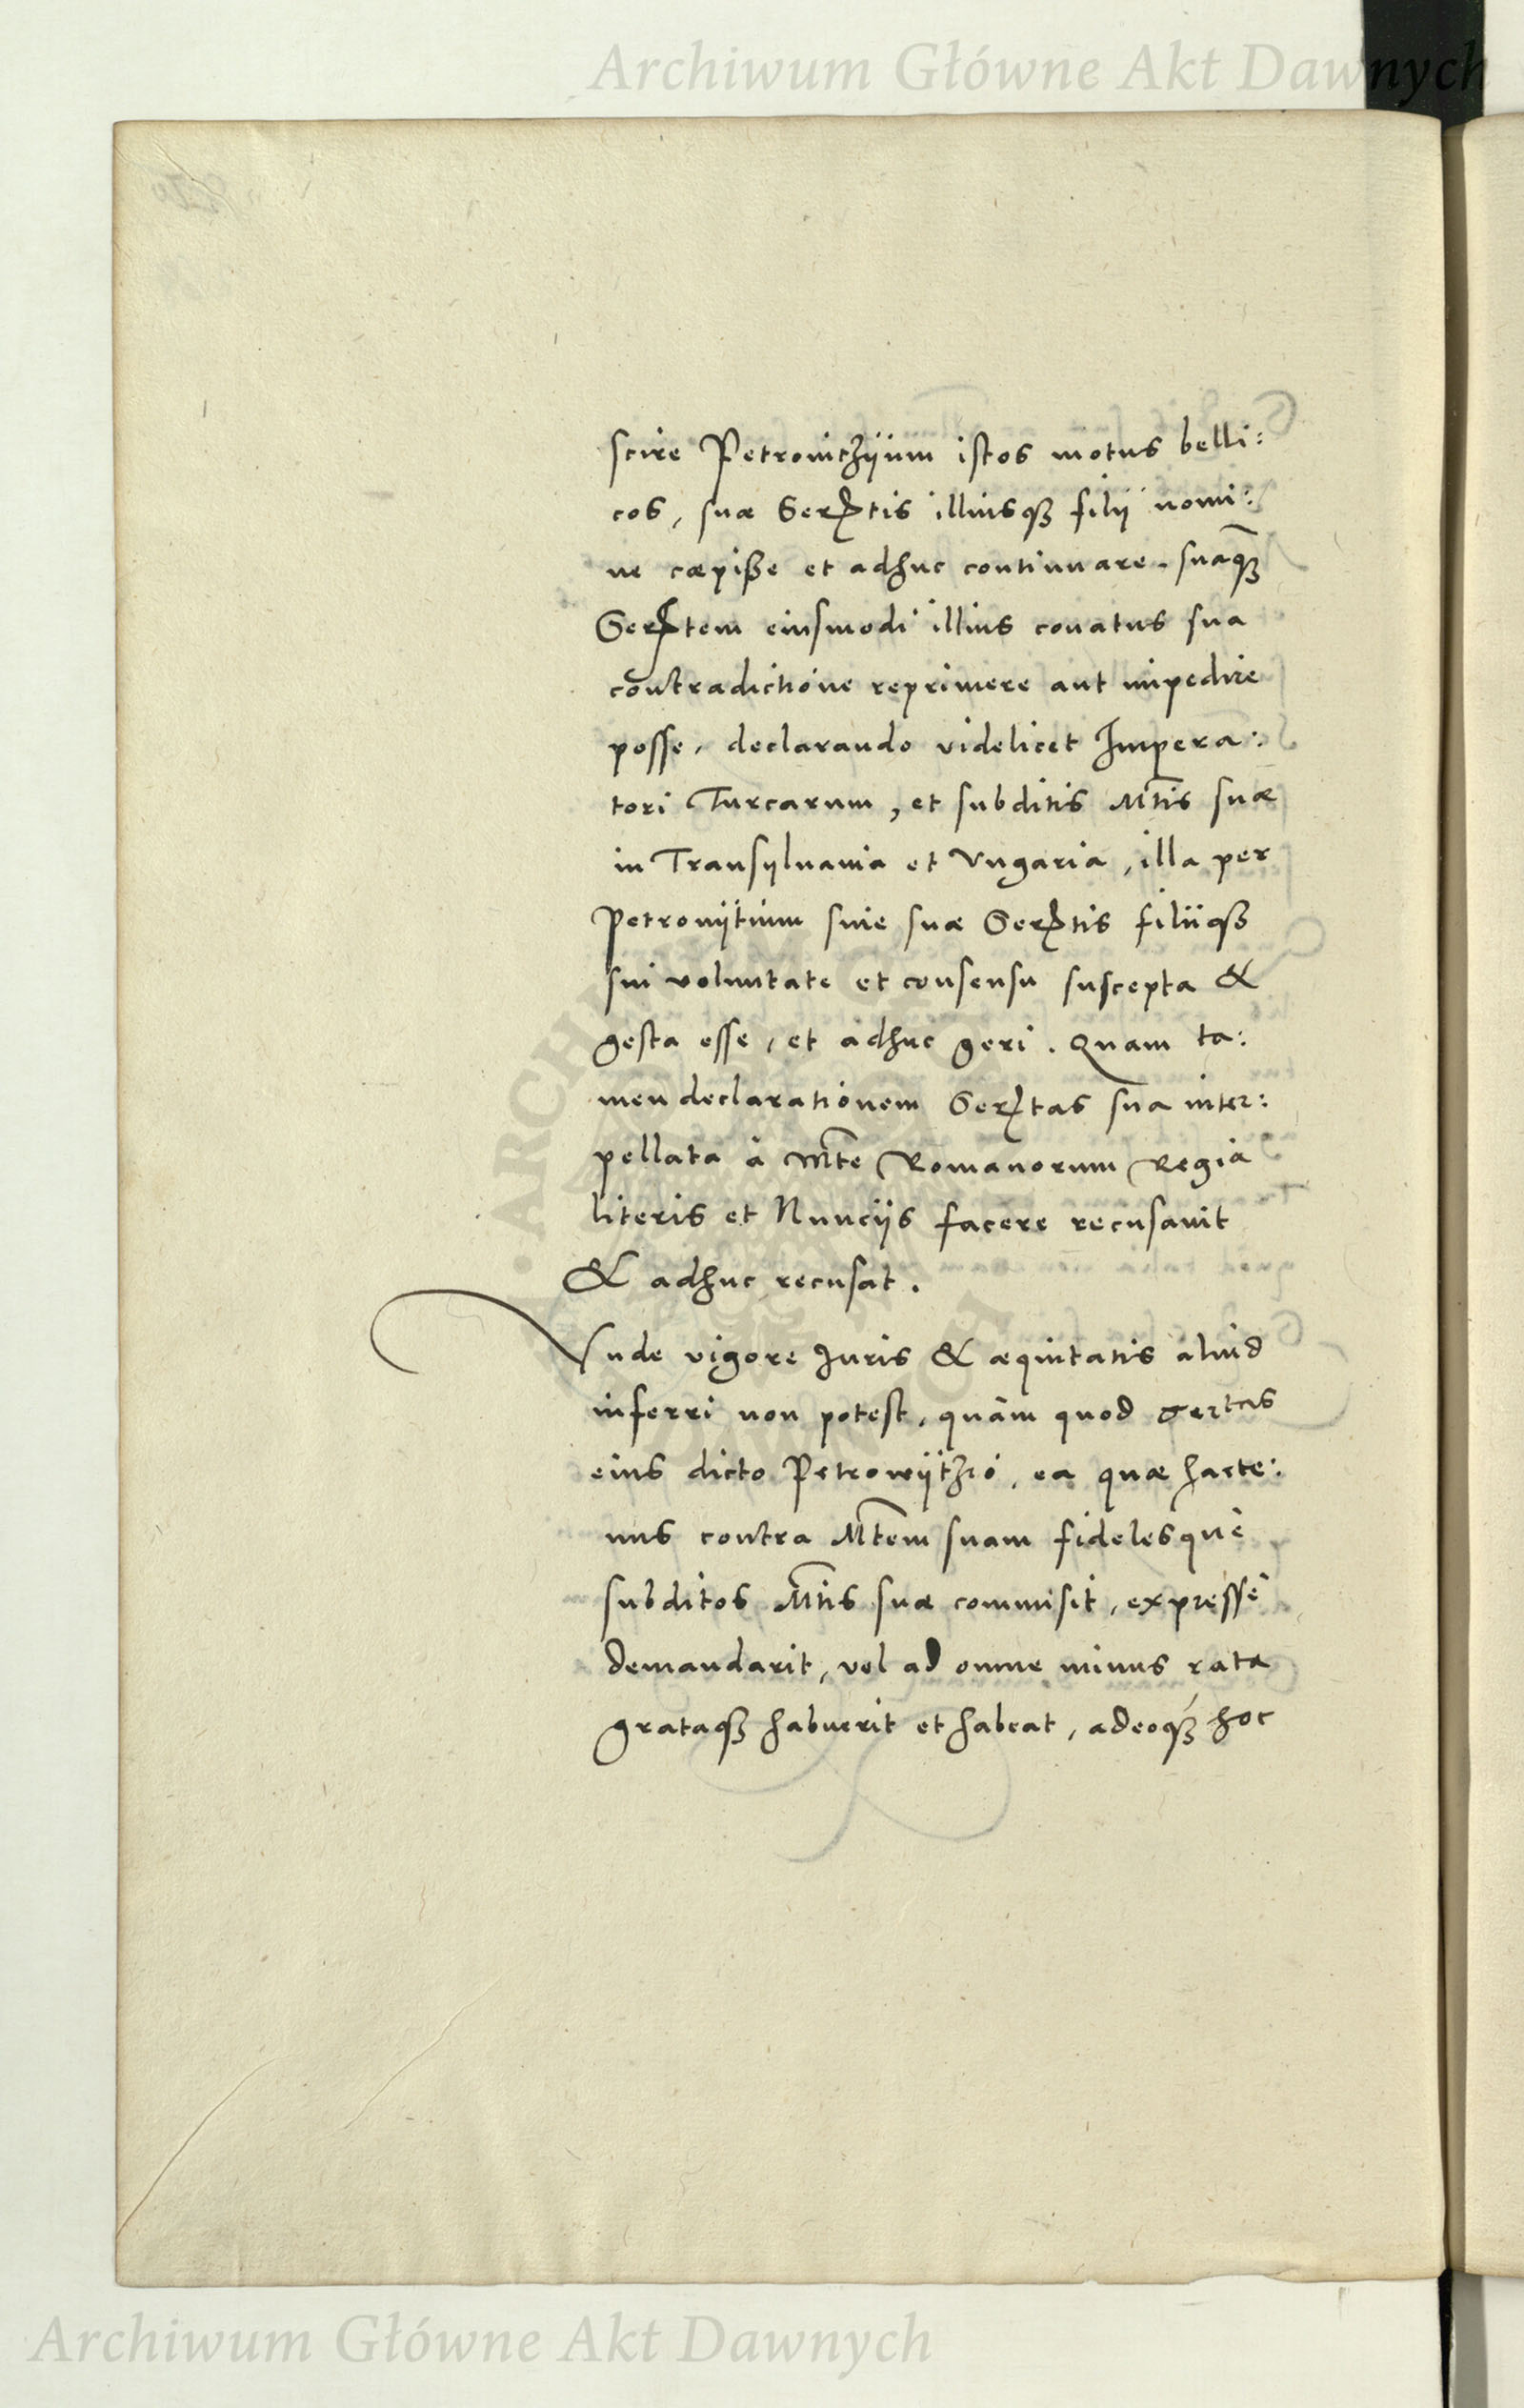 Archiwum Główne Akt Dawnych
scire Petrouitzÿum istos motus belli:
cos, suæ Serꝑtis illiusqꝫ filÿ nomi:
ne cæpiße et adhuc continuare. suāqꝫ
Serꝑtem eiusmodi illius conatus sua
contradictione reprimere aut impedire
posse, declarando videlicet Impera:
tori Turcarum, et subditis Mtis suæ
in Transÿluania et Vngaria, illa per
Petrouÿtium siue suæ Serꝑtis filiiqꝫ
sui voluntate et consensu suscepta &
gesta esse, et adhuc geri. Quam ta:
men declarationem Serꝑtas sua inter:
pellata à Mte Romanorum Regia
literis et Nuncÿs facere recusauit
& adhuc recusat.
Vnde vigore Juris & æquitatis aliud
inferri non potest, quàm quod Sertas
eius dicto Petrowÿtzio, ea quæ hacte:
nus contra Mtem suam fidelesquè
subditos Mtis suæ commisit, expressè
demandarit, vel ad omne minus rata
grataqꝫ habuerit et habeat, adeoqꝫ hoc
ARCHIWUM
Archiwum Główne Akt Dawnych